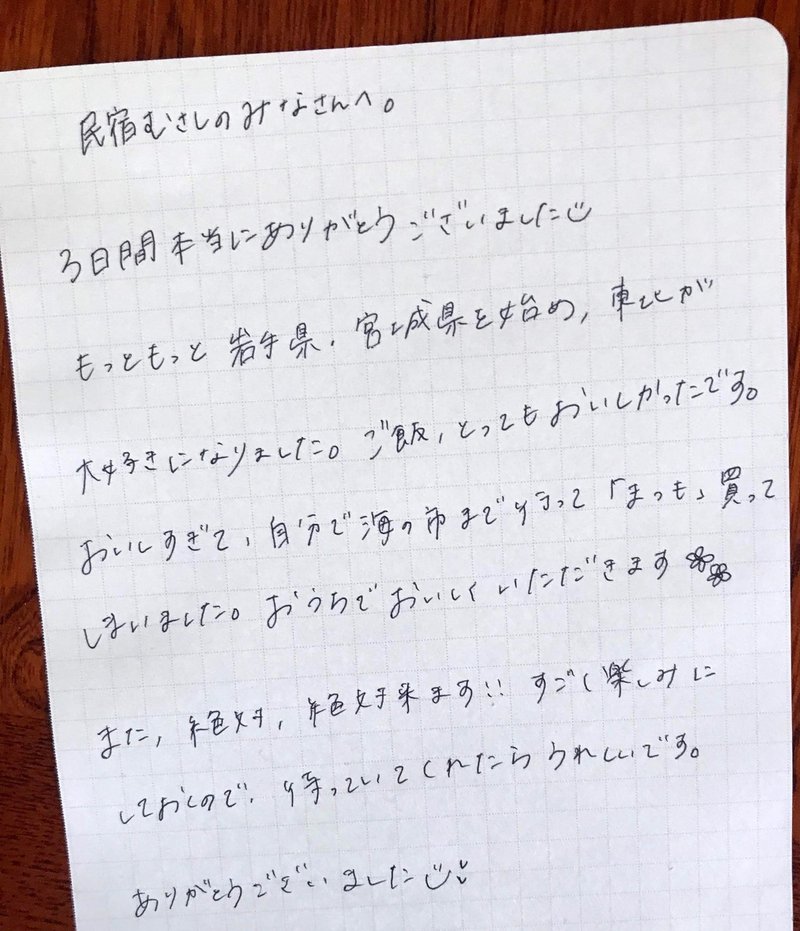 民宿むさしのみなさんへ。
3日間本当にありがとうございました
もっともっと岩手県、宮城県を始め、東北が
大好きになりました。ご飯、とってもおいしかったです。
おいしすぎて、自分で海の市まで行って「まつも」買って
しまいました。おうちでおいしくいただきます
また、絶対、絶対来ます!! すごく楽しみに
しておくので、待っていてくれたらうれしいです。
ありがとうございました